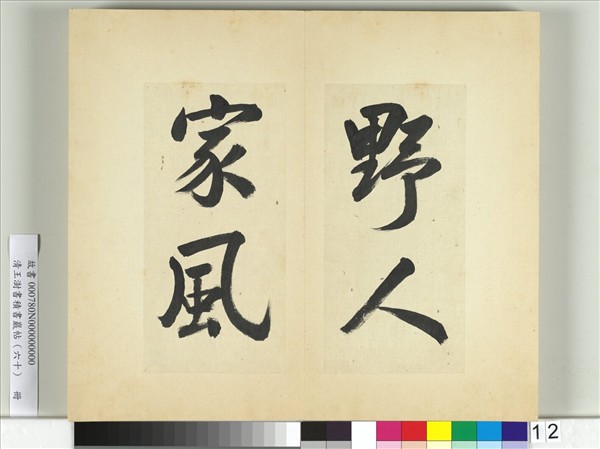 野人
家風
故書 000780N000000000
清王澍書積書巖帖(六十) 冊
12